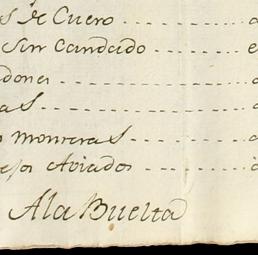 s de Cuero
Sin Candado
dones
as
monteras
Aviados
A la Buelta